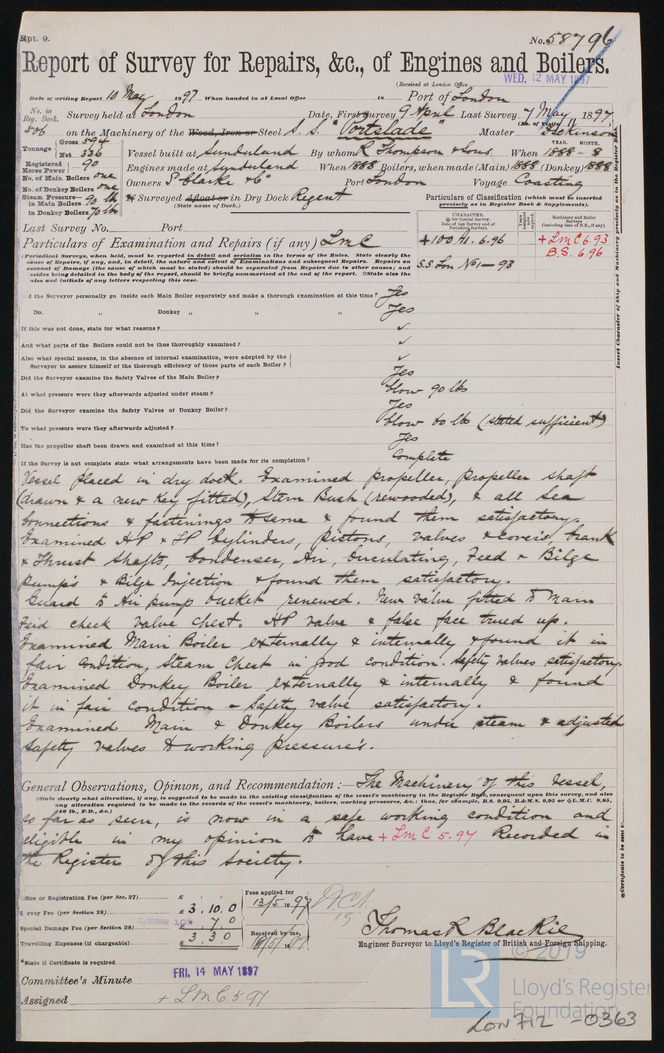 Rpt. 9.
No. 58796
Report of Survey for Repairs, &c., of Engines and Boilers.
(Received at London Office WED. 12 MAY 1897
Date of writing Report 10 May 1897. When handed in at Local Office 18 Port of London
No. in Reg. Book. 506 Survey held at London Date, First Survey 9 April Last Survey 7 May 1897
on the Machinery of the Wood, Iron or Steel S. S. "Portslade" Master Dickinson
Tonnage Gross 594 Net 336
Vessel built at Sunderland By whom R Thompson & Sons When 1888 - 8
YEAR. MONTH.
Registered Horse Power 90 Engines made at Sunderland When 1888 Boilers, when made (Main) 1888 (Donkey) 1888
No. of Main Boilers one
No. of Donkey Boilers one
Owners S. Clarke & Co Port London Voyage Coasting
Steam Pressure in Main Boilers 90 lb in Donkey Boilers 70 lb
If Surveyed Afloat or in Dry Dock Regent
(State name of Dock.)
Particulars of Classification (which must be inserted precisely as in Register Book & Supplements).
Last Survey No. Port
Particulars of Examination and Repairs (if any) LMC
+100 A1. 6.96
S.S. Lon No1 - 93
+LMC 6.93
B.S. 6.96
(Periodical Surveys, when held, must be reported in detail and seriatim in the terms of the Rules. State clearly the
Did the Surveyor personally go inside each Main Boiler separately and make a thorough examination at this time? Yes
Do. " Donkey " " " Yes
If this was not done, state for what reasons? ✓
And what parts of the Boilers could not be thoroughly examined? ✓
Also what special means, in the absence of internal examination, were adopted by the
Surveyor to assure himself of the thorough efficiency of those parts of each Boiler? ✓
Did the Surveyor examine the Safety Valves of the Main Boiler? Yes
At what pressure were they afterwards adjusted under steam? blow 90 lbs
Did the Surveyor examine the Safety Valves of Donkey Boiler? Yes
To what pressure were they afterwards adjusted? blow 60 lbs (stated sufficient)
Has the propeller shaft been drawn and examined at this time? Yes
If the Survey is not complete state what arrangements have been made for its completion? Complete
Vessel placed in dry dock. Examined propeller, propeller shaft
(drawn & a new key fitted), Stern Bush (rewooded), & all Sea
connections & fastenings to same & found them satisfactory.
Examined HP & LP Cylinders, pistons, valves & covers, Crank
& Thrust shafts, Condenser, Air, Circulating, Feed & Bilge
pumps & Bilge Injection & found them satisfactory.
Guard to Air pump bucket renewed. New valve fitted to Main
Feed check valve chest. HP valve & false face trued up.
Examined Main Boiler externally & internally & found it in
fair condition, Steam Chest in good condition. Safety valves satisfactory.
Examined Donkey Boiler externally & internally & found
it in fair condition - Safety valve satisfactory.
Examined Main & Donkey Boilers under steam & adjusted
safety valves to working pressures.
General Observations, Opinion, and Recommendation:- The Machinery of this Vessel,
(State clearly what alteration, if any, is suggested to be made in the existing classification of the vessel's machinery in the Register Book, consequent upon this survey, and also
any alteration required to be made in the records of the vessel's machinery, boilers, working pressures, &c.: thus, for example, B.S. 9.95, B.&M.S. 9.95 or +L.M.C. 9.95,
so far as seen, is now in a safe working condition and
eligible in my opinion to have +LMC 5.97 Recorded in
the Register of this Society.
Office or Registration Fee (per Sec. 27) £
Survey Fee (per Section 28) £ 3.10.0
Special Damage Fee (per Section 28) £ 7 0
Travelling Expenses (if chargeable) £ 3 3 0
Fees applied for
13/5 1897
Received by me,
Thomas R Blackie
Engineer Surveyor to Lloyd's Register of British and Foreign Shipping.
*State if Certificate is required
Committee's Minute FRI. 14 MAY 1897
Assigned + LMC 5.97
© 2019
LR
Lloyd's Register
Foundation
LON 712 - 0363